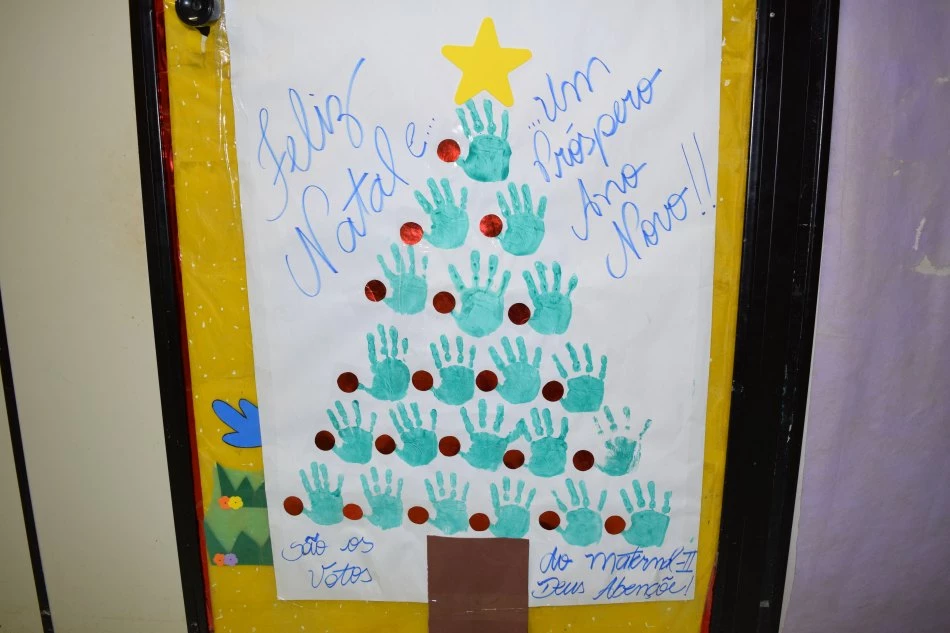 Feliz
Natal e...
...Um
Próspero
Ano
Novo!!
São os
Votos
do Maternal II
Deus Abençõe!